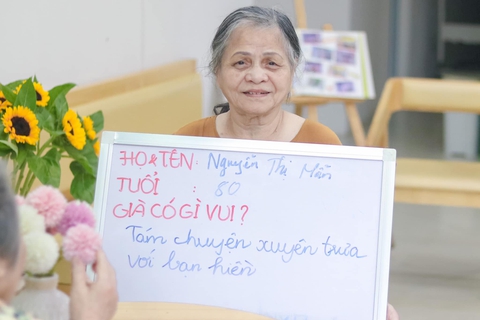 HỌ & TÊN: Nguyễn Thị Mẫn
TUỔI : 80
GIÀ CÓ GÌ VUI?
Tám chuyện xuyên trưa
với bạn hiền